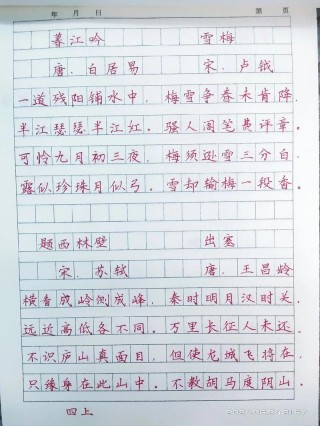 年 月 日 第 页
暮江吟 雪梅
唐．白居易 宋．卢钺
一道残阳铺水中，梅雪争春未肯降，
半江瑟瑟半江红。骚人阁笔费评章。
可怜九月初三夜，梅须逊雪三分白，
露似珍珠月似弓。雪却输梅一段香。
题西林壁 出塞
宋．苏轼 唐．王昌龄
横看成岭侧成峰，秦时明月汉时关，
远近高低各不同。万里长征人未还。
不识庐山真面目，但使龙城飞将在，
只缘身在此山中。不教胡马度阴山。
四上